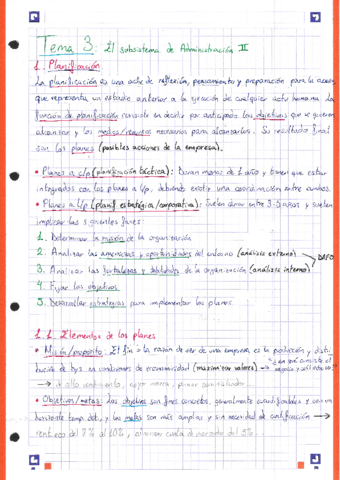 Tema 3: El subsistema de Administración II
1. Planificación
La planificación es una actv de reflexión, pensamiento y preparación para la acción
que representa un estadio anterior a la ejecución de cualquier actv humana. La
función de planificación consiste en decidir por anticipado los objetivos que se quieren
alcanzar y los medios/recursos necesarios para alcanzarlos. Su resultado final
son los planes (posibles acciones de la empresa).
• Planes a c/p (planificación táctica): Duran menos de 1 año y tienen que estar
integrados con los planes a l/p, debiendo existir una coordinación entre ambos.
• Planes a l/p (planif estratégica/corporativa): Suelen durar entre 3-5 años y suelen
implicar las siguientes fases:
1. Determinar la misión de la organización
2. Analizar las amenazas y oportunidades del entorno (análisis externo)
DAFO
3. Analizar las fortalezas y debilidades de la organización (análisis interno)
4. Fijar los objetivos
5. Desarrollar estrategias para implementar los planes.
1.1. Elementos de los planes
• Misión/propósito: El fin o la razón de ser de una empresa es la producción y distri-
bución de bys en condiciones de economicidad (maximizar valores) →
→ alto rendimiento,
• Objetivos/metas: Los objetivos son fines concretos, generalmente cuantificables y con un
horizonte temp. det., y las metas son más amplias y sin necesidad de cuantificación →
del 7% al 10%, cuota de mercado del 5%...